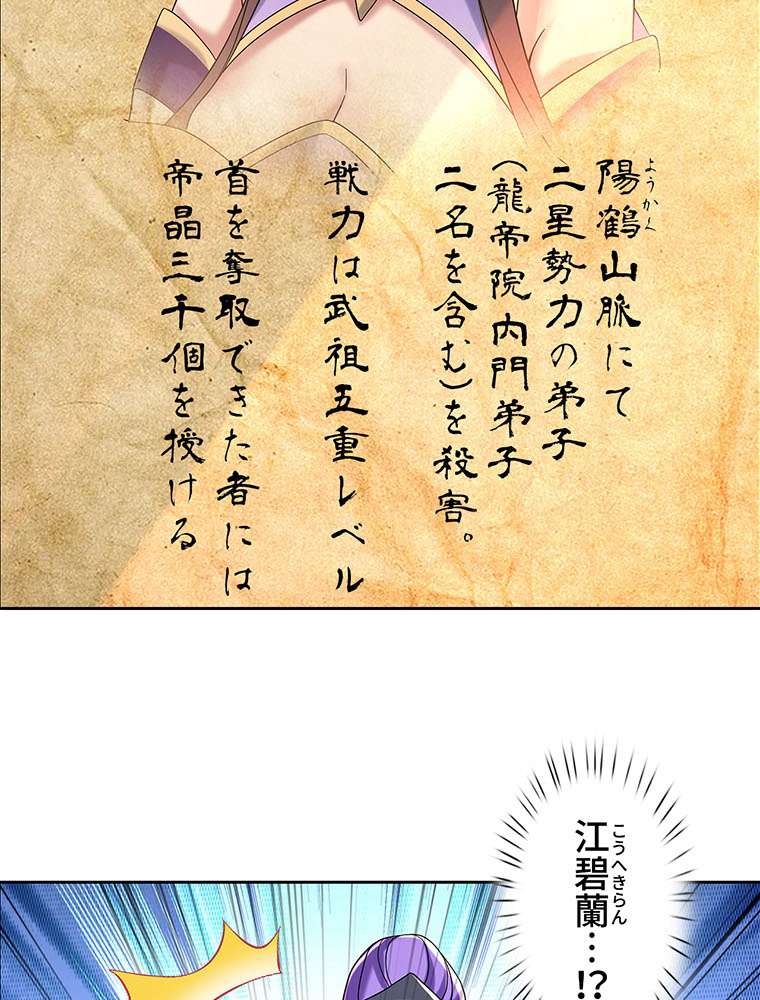 陽鶴山脈にて
ようかく
二星勢力の弟子
(龍帝院内門弟子
二名を含む)を殺害。
戦力は武祖五重レベル
首を奪取できた者には
帝晶三千個を授ける
江碧蘭…!?
こうへきらん